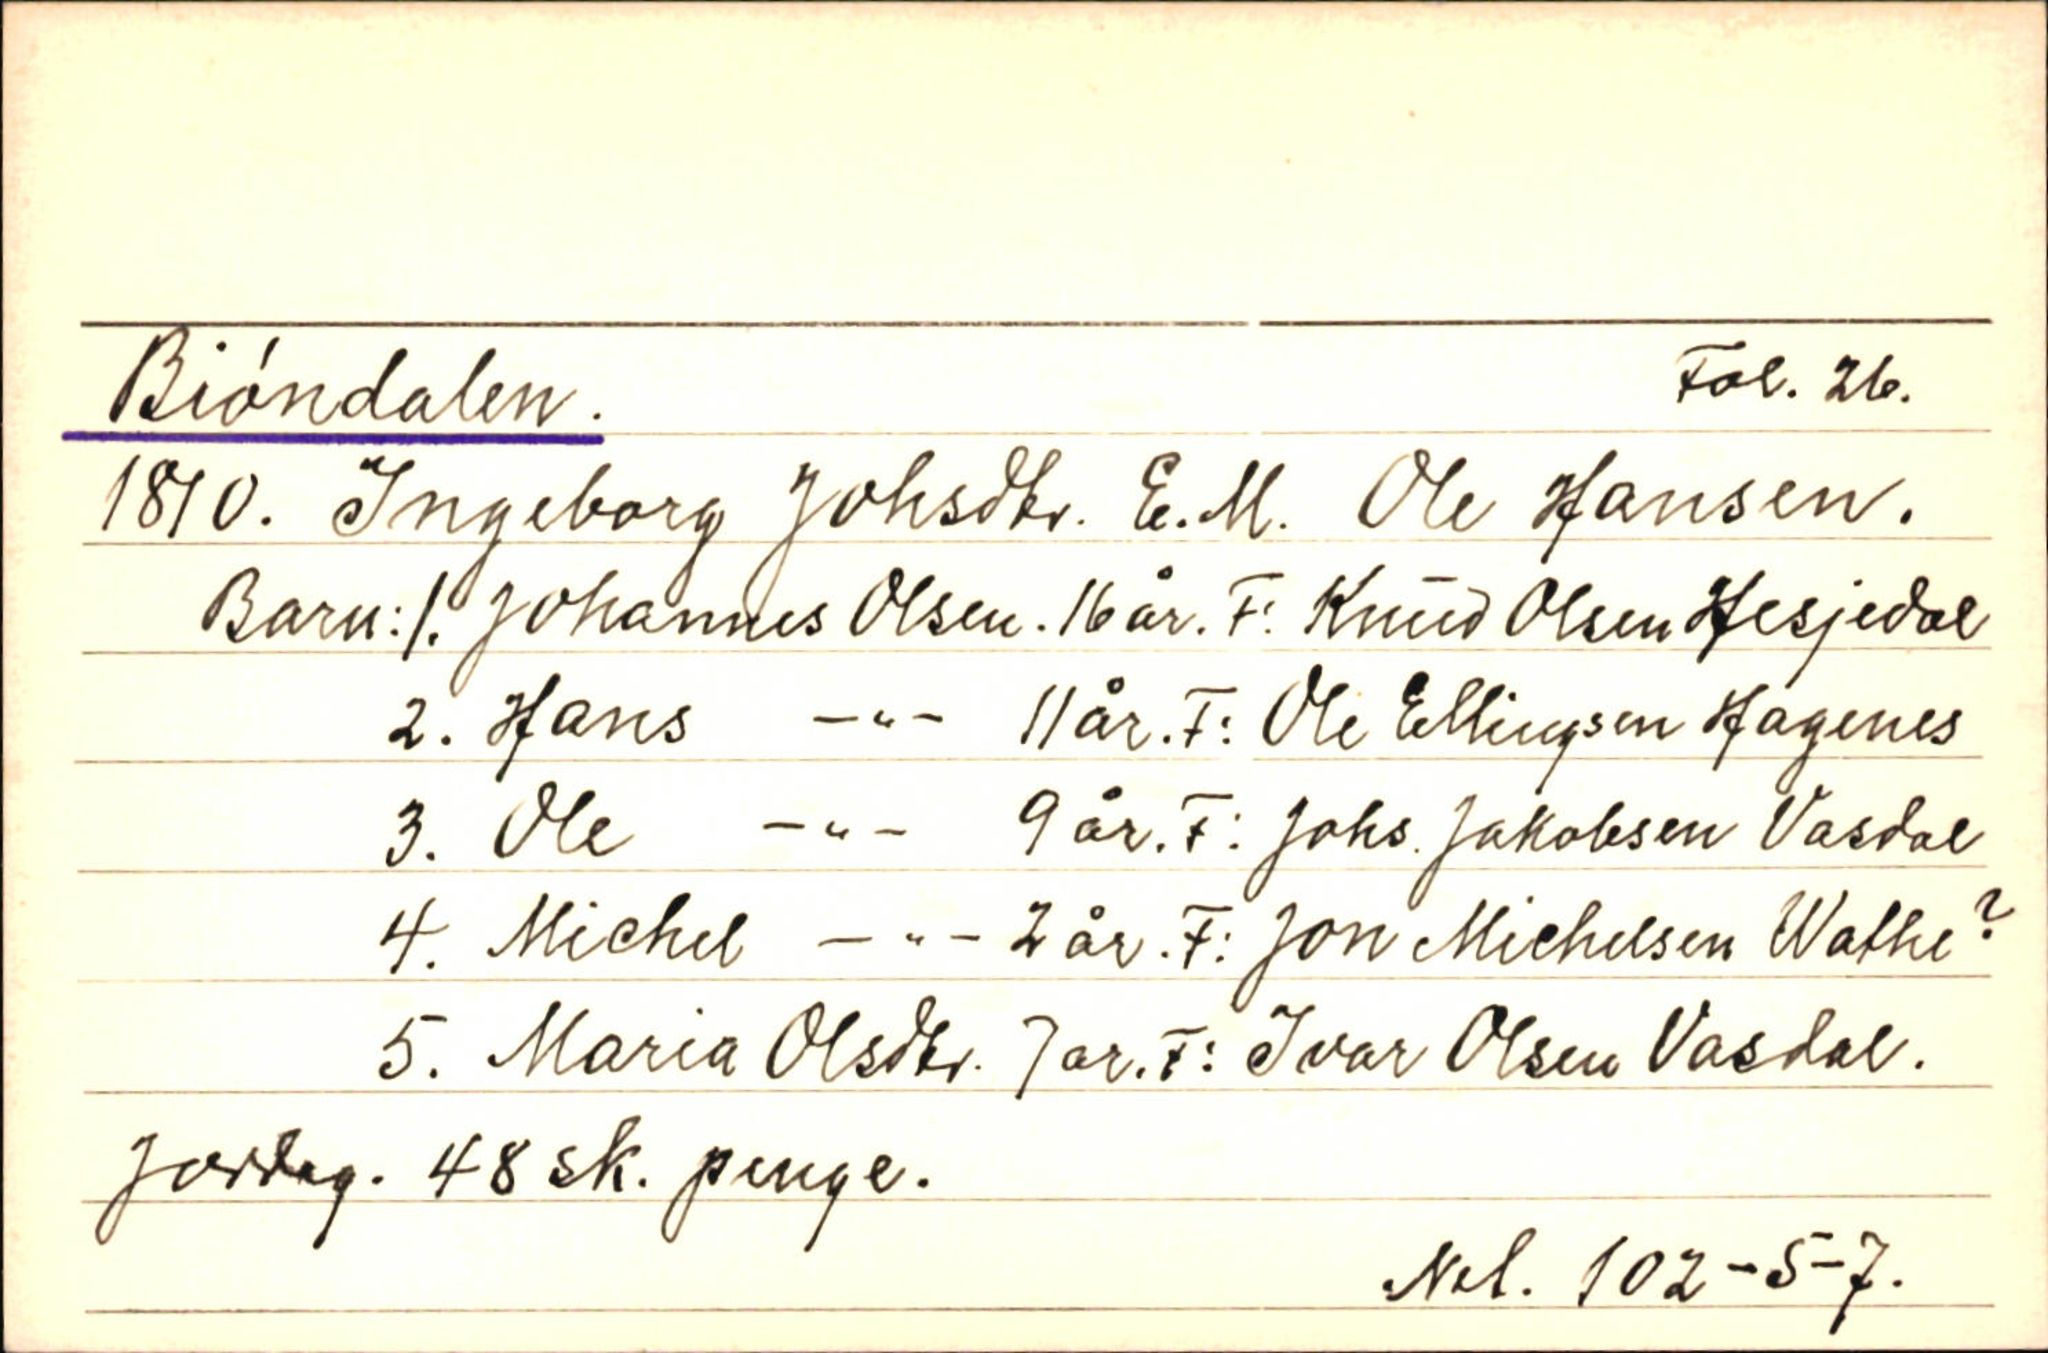 Bióndalen. Fol. 26.
1810. Ingeborg Johsdtr. E.M. Ole Hansen.
Barn: 1. Johannes Olsen. 16 år. F: Knūd Olsen Hesjedal
2. Hans -"- 11 år. F: Ole Ellingsen Hagenes
3. Ole -"- 9 år. F: Johs. Jakobsen Vasdal
4. Michel -"- 2 år. F: Jon Michelsen Wathe?
5. Maria Olsdtr. 7 ar. F: Ivar Olsen Vasdal.
Jordeg. 48 sk. penge.
Nel. 102-5-7.